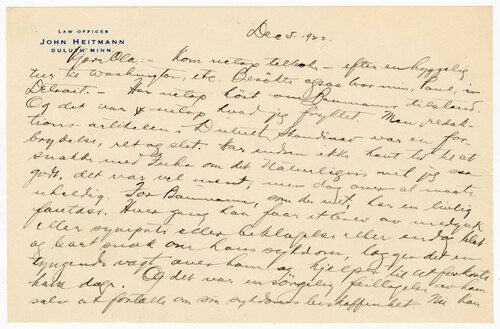 LAW OFFICES
JOHN HEITMANN
DULUTH, MINN.
Dec 5 - 1922.
Kjære Ola; - Kom netop tilbake - efter en hyggelig
tur til Washington, etc. Besøkte ogsaa bror min, Paul, i
Detroit - Har netop hørt om Baumanns tilstand.
Og det var netop hvad jeg frygtet. Men redak-
tions-artikelen i Duluth Skandinav var en for-
brydelse, ret og slet. Har endnu ikke havt tid til at
snakke med om det. Naturligvis vet jeg saa
godt, det var vel ment, men dog over al maate
uheldig. For Baumann, som du vet, har en livlig
fantasi. Hver gang han faar et brev av medynk
eller sympati eller beklagelse eller endog blot
og bart snak om hans sygdom, lægger det en
tyngende vægt over ham og hjelper til at forkorte
hans dage. Og det var en sørgelig feiltagelse av ham
selv at fortælle om sin sygdoms beskaffenhet. Nu kan